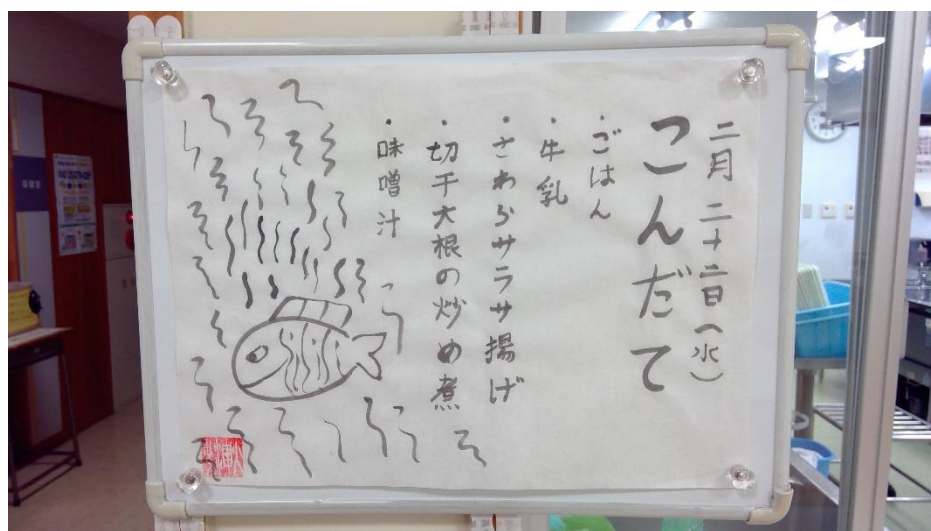 二月 二十二日(水)
こんだて
・ごはん
・牛乳
・さわらサラサ揚げ
・切干大根の炒め煮
・味噌汁